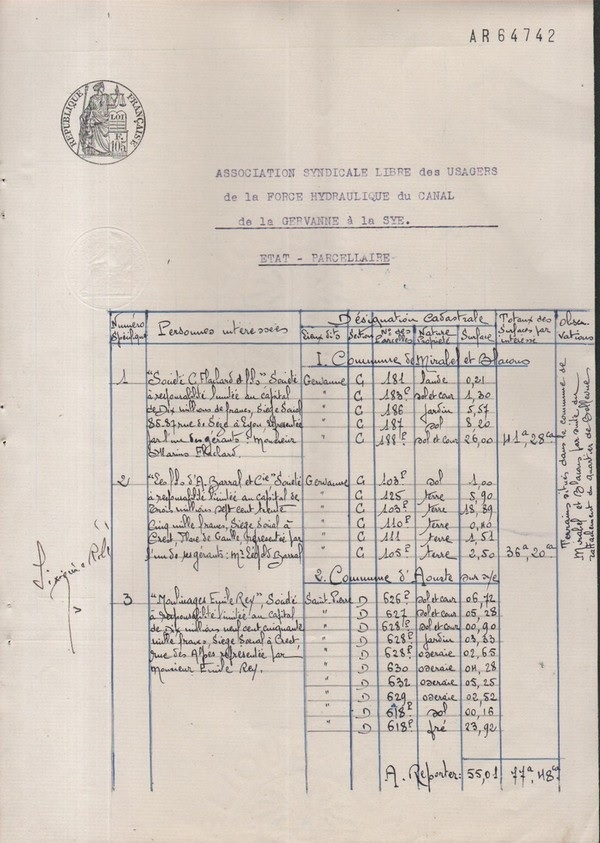 AR64742
RÉPUBLIQUE FRANÇAISE
LOI
ASSOCIATION SYNDICALE LIBRE des USAGERS
de la FORCE HYDRAULIQUE du CANAL
de la GERVANNE à la SYE.
ETAT - PARCELLAIRE
Numéro Spécifique
Personnes interessées
Désignation Cadastrale
Lieux dits
Section
Nos des Parcelles
Nature Propriété
Surface
Totaux des Surfaces par interessé
Obser vations
1. Commune de Mirabel et Blacons
1 "Société C. & fils" Société Gervanne G 181 lande 0,21
à responsabilité limitée au capital " G 183P sol et cour 1,30
de Dix millions de francs, Siège Social " G 186 jardin 5,57
rue de Siège à Lyon, représentée " G 187 sol 8,20
par l'un des gérants: Monsieur " G 188P sol et cour 26,00 41a,28ca
Marino
2 "Les fils d'A. Barral et Cie" Société Gervanne G 103P sol 1,00
à responsabilité limitée au capital de " G 125 terre 5,90
trois millions sept cent trente " G 103P terre 18,89
Cinq mille francs, Siège Social à " G 110P terre 0,40
Crest, Place de Gaulle représentée par " G 111 terre 1,51
l'un de ses gérants: Mr Léopold Barral " G 105P terre 2,50 36a,20ca
Terrains situés dans la commune de
Mirabel et Blacons par suite du
rattachement du quartier de
2. Commune d'Aouste sur sye
3 "Moulinages Emile Rey", Société Saint Pierre D 626P sol et cour 06,72
à responsabilité limitée au capital " D 627 sol et cour 05,28
de Dix millions neuf cent cinquante " D 628P sol et cour 00,90
mille francs, Siège Social à Crest, " D 628P jardin 03,83
rue des Alpes représentée par " D 628P oseraie 02,65
Monsieur Emile Rey. " D 630 oseraie 04,28
" D 632 oseraie 05,25
" D 629 oseraie 02,52
" D 618P sol 00,16
" D 618P pré 23,92
A. Reporter: 55,01 77a,48ca